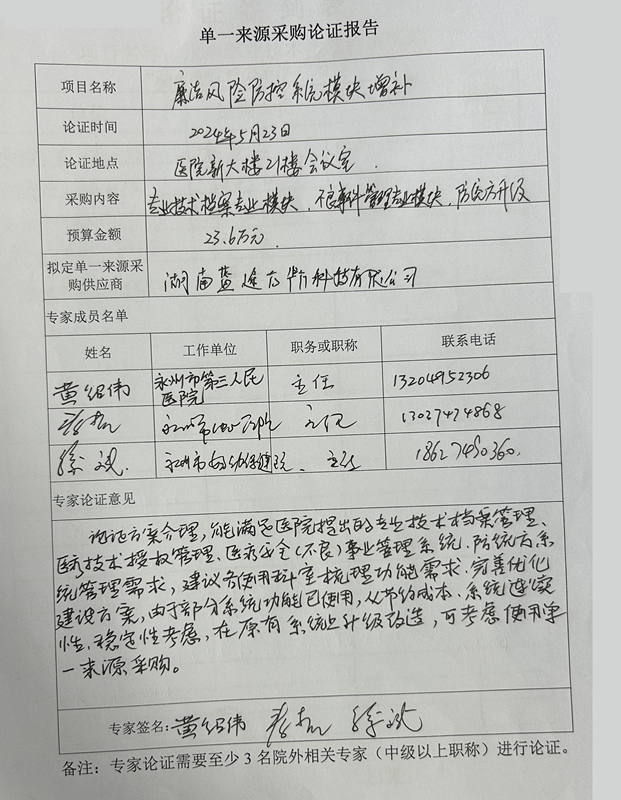 单一来源采购论证报告
项目名称 廉洁风险防控系统模块增补
论证时间 2024年5月23日
论证地点 医院新大楼21楼会议室.
采购内容 专业技术档案专业模块、不良事件管理专业模块、防统方升级
预算金额 23.6万元.
拟定单一来源采
购供应商
湖南蓝途方鼎科技有限公司
专家成员名单
姓名 工作单位 职务或职称 联系电话
黄绍伟 永州市第三人民医院 主任 13204952306
永州市 主任 13027474868
永州市妇幼保健院、 主任 18627490360.
专家论证意见
论证方案合理,能满足医院提出的专业技术档案管理、
医疗技术授权管理、医疗安全(不良)事业管理系统、防统方系
统管理需求,建议各使用科室梳理功能需求、完善优化
建设方案,由于部分系统功能已使用,从节约成本、系统连续
性、稳定性考虑,在原有系统上升级改造,可考虑使用单
一来源采购。
专家签名: 黄绍伟
备注:专家论证需要至少3名院外相关专家(中级以上职称)进行论证。